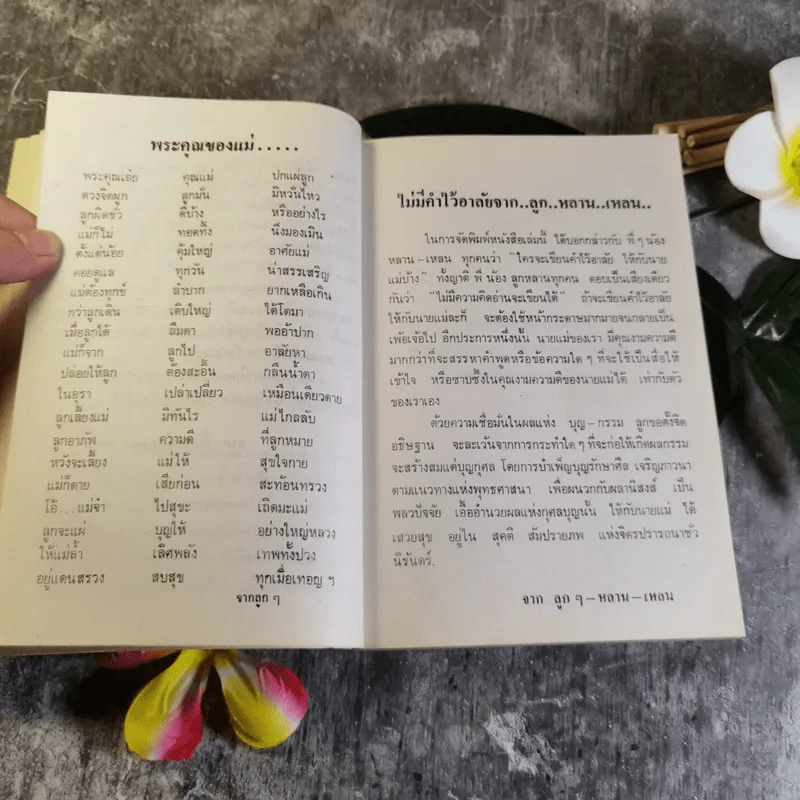 พระคุณของแม่.....
พระคุณเอ๋ย คุณแม่ ปกแผ่ลูก
ดวงจิตผูก ลูกมั่น มิหวั่นไหว
ลูกผิดชั่ว ดีบ้าง หรืออย่างไร
แม่ก็ไม่ ทอดทิ้ง นิ่งมองเมิน
ตั้งแต่น้อย คุ้มใหญ่ อาศัยแม่
คอยดูแล ทุกวัน น่าสรรเสริญ
แม่ต้องทุกข์ ลำบาก ยากเหลือเกิน
กว่าลูกเดิน เติบใหญ่ ได้โตมา
เมื่อลูกได้ ลืมตา พออ้าปาก
แม่ก็จาก ลูกไป อาลัยหา
ปล่อยให้ลูก ต้องสะอื้น กลืนน้ำตา
ในอุรา เปล่าเปลี่ยว เหมือนเดียวดาย
ลูกเลี้ยงแม่ มิทันไร แม่ไกลลับ
ลูกอาภัพ ความดี ที่ลูกหมาย
หวังจะเลี้ยง แม่ให้ สุขใจกาย
แม่ก็ตาย เสียก่อน สะท้อนทรวง
โอ้...แม่จ๋า ไปสุขะ เถิดมะแม่
ลูกจะแผ่ บุญให้ อย่างใหญ่หลวง
ให้แม่ล้ำ เลิศพลัง เทพทั้งปวง
อยู่แดนสรวง สบสุข ทุกเมื่อเทอญ ฯ
จากลูก ๆ
ไม่มีคำไว้อาลัยจาก..ลูก..หลาน..เหลน..
ในการจัดพิมพ์หนังสือเล่มนี้ ได้บอกกล่าวกับ พี่ ๆ น้อง
หลาน–เหลน ทุกคนว่า "ใครจะเขียนคำไว้อาลัย ให้กับนาย
แม่บ้าง" ทั้งญาติ พี่ น้อง ลูกหลานทุกคน ตอบเป็นเสียงเดียว
กันว่า "ไม่มีความคิดอ่านจะเขียนได้" ถ้าจะเขียนคำไว้อาลัย
ให้กับนายแม่ละก็ จะต้องใช้หน้ากระดาษมากมายจนกลายเป็น
เพ้อเจ้อไป อีกประการหนึ่งนั้น นายแม่ของเรา มีคุณงามความดี
มากกว่าที่จะสรรหาคำพูดหรือข้อความใด ๆ ที่จะใช้เป็นสื่อให้
เข้าใจ หรือซาบซึ้งในคุณงามความดีของนายแม่ได้ เท่ากับตัว
ของเราเอง
ด้วยความเชื่อมั่นในผลแห่ง บุญ–กรรม ลูกขอตั้งจิต
อธิษฐาน จะละเว้นจากการกระทำใด ๆ ที่จะก่อให้เกิดผลกรรม
จะสร้างสมแต่บุญกุศล โดยการบำเพ็ญบุญรักษาศีล เจริญภาวนา
ตามแนวทางแห่งพุทธศาสนา เพื่อผนวกกับผลานิสงส์ เป็น
พลวปัจจัย เอื้ออำนวยผลแห่งกุศลบุญนั้น ให้กับนายแม่ ได้
เสวยสุข อยู่ใน สุคติ สัมปรายภพ แห่งจิตรปรารถนาชั่ว
นิรันดร์.
จาก ลูก ๆ–หลาน–เหลน